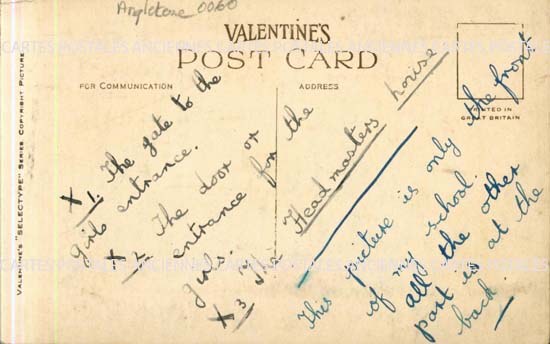 Angleterre 0060
VALENTINE'S
POST CARD
FOR COMMUNICATION
ADDRESS
PRINTED IN
GREAT BRITAIN
VALENTINE'S "SELECTYPE" SERIES. COPYRIGHT PICTURE
X 1. The gate to the
girls entrance.
X 2. The door or
entrance for the
girls.
X 3 The Headmasters house
This picture is only the front
of my school.
all the other
part is at the
back
CARTES POSTALES ANCIENNES